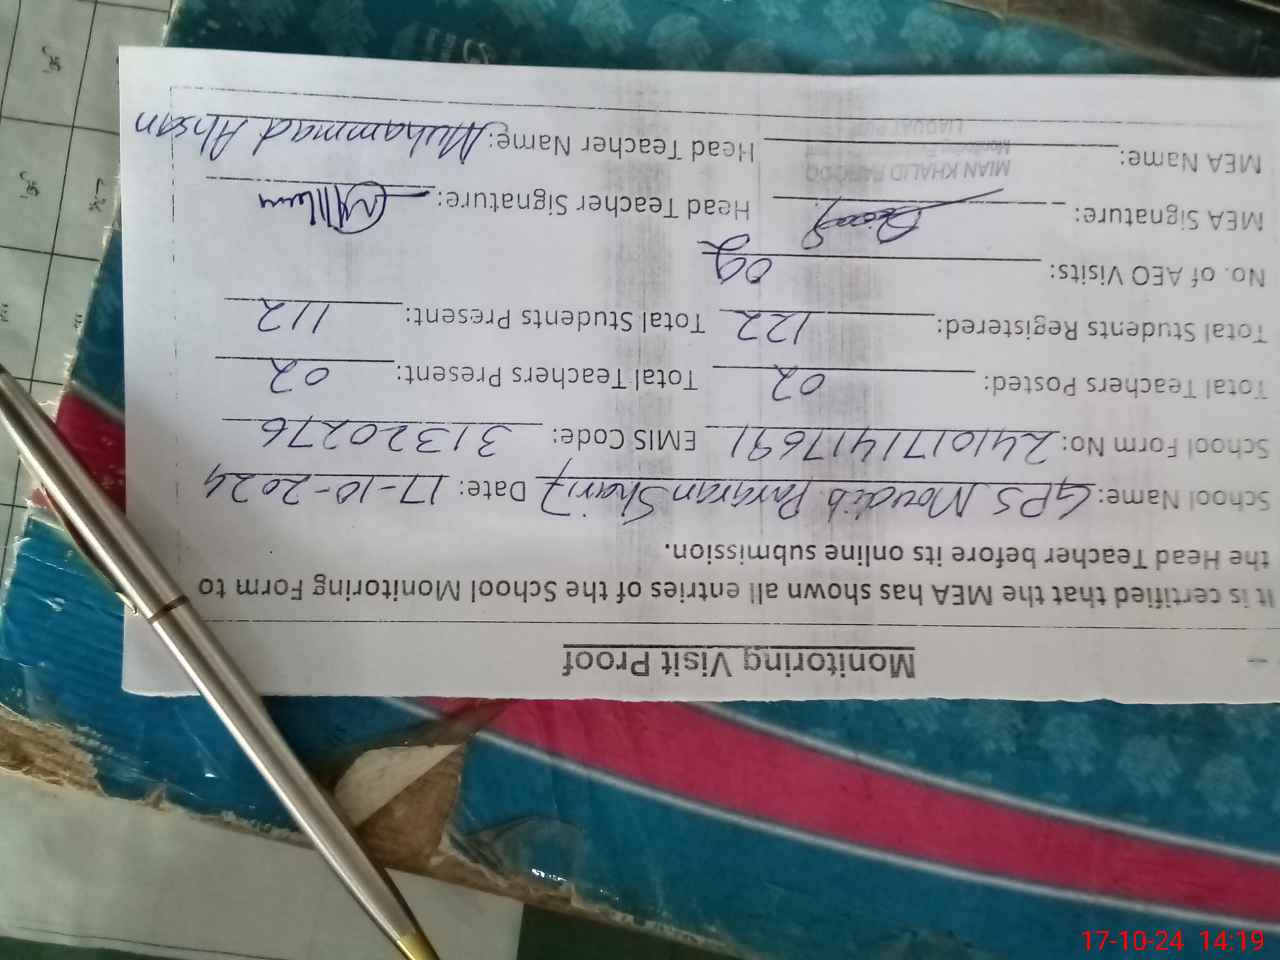 Monitoring Visit Proof
It is certified that the MEA has shown all entries of the School Monitoring Form to
the Head Teacher before its online submission.
School Name: GPS Moudib Pararan Sharif Date: 17-10-2024
School Form No: 241017141417691 EMIS Code: 31320276
Total Teachers Posted: 02 Total Teachers Present: 02
Total Students Registered: 122 Total Students Present: 112
No. of AEO Visits: 02
MEA Signature: Head Teacher Signature:
MIAN KHALID FAROOQ
MEA Name: Head Teacher Name: Muhammad Ahsan
LIAQUAT PUR
17-10-24 14:19